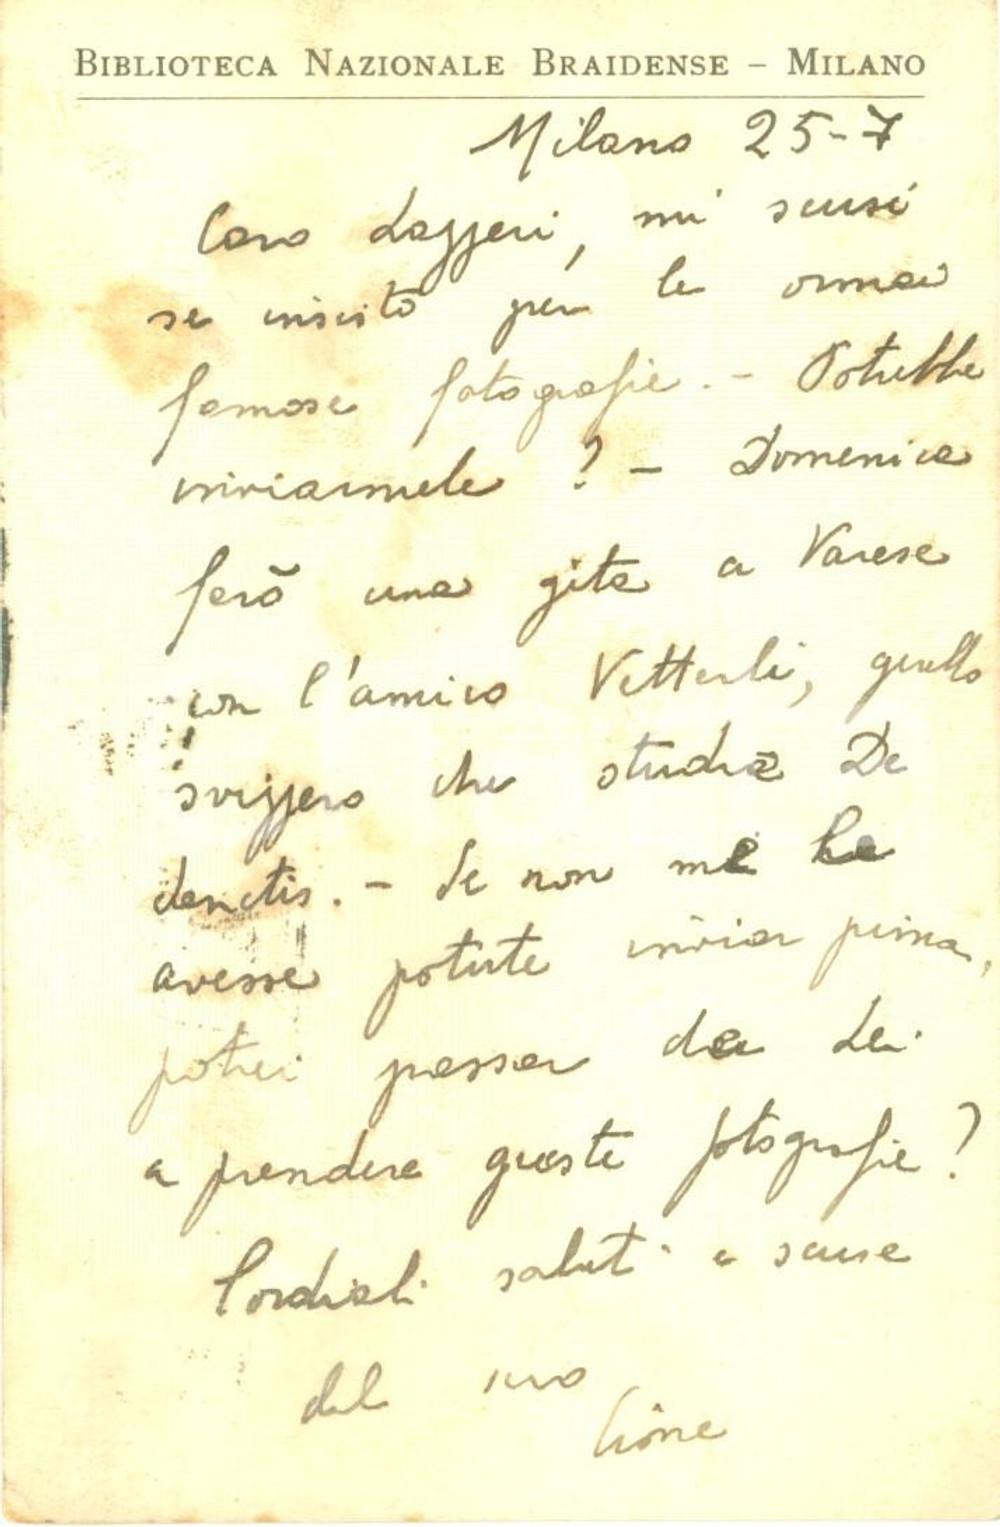 BIBLIOTECA NAZIONALE BRAIDENSE – MILANO
Milano 25-7
Caro Lazzeri, mi scusi
se insisto per le ormai
famose fotografie. - Potrebbe
inviarmele ? - Domenica
farò una gita a Varese
con l'amico Vetterli, quello
svizzero che studia De
denctis. - Se non me le
avesse potute inviar prima,
potrei passar da Lei
a prendere queste fotografie ?
Cordiali saluti e scuse
dal suo